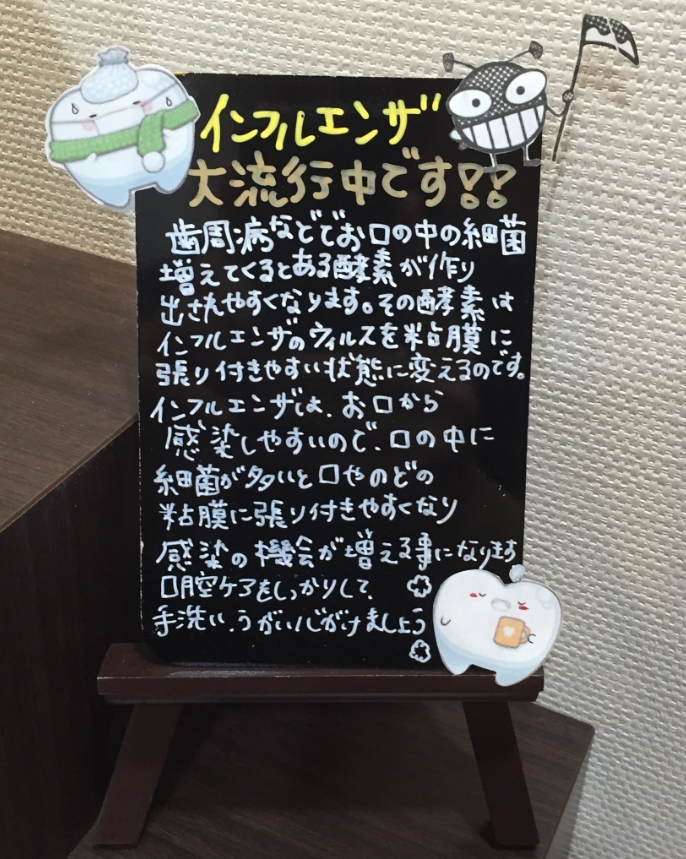 インフルエンザ
大流行中です!!
歯周病などでお口の中の細菌
増えてくるとある酵素が作り
出されやすくなります。その酵素は
インフルエンザのウィルスを粘膜に
張り付きやすい状態に変えるのです。
インフルエンザは、お口から
感染しやすいので、口の中に
細菌が多いと口やのどの
粘膜に張り付きやすくなり
感染の機会が増える事になります
口腔ケアをしっかりして、
手洗い、うがい心がけましょう